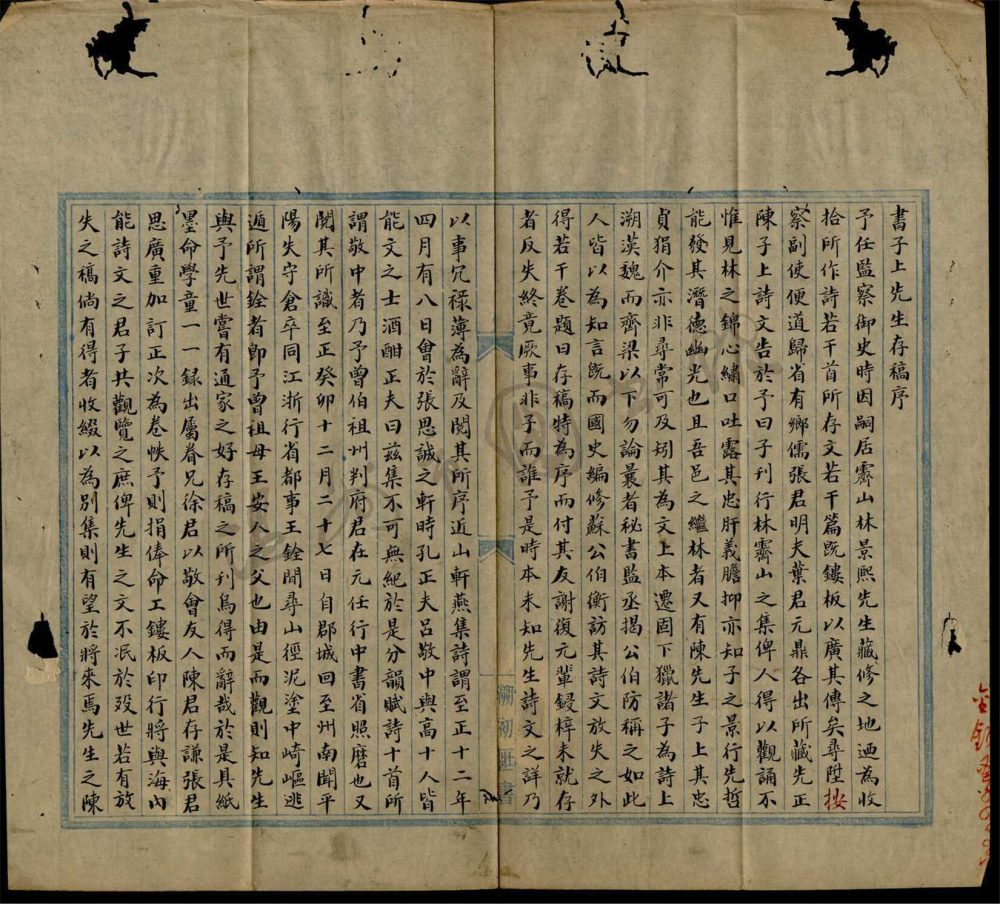 書子上先生存稿序
予任監察御史時因嗣居霽山林景熙先生藏修之地迺為收
拾所作詩若干首所存文若干篇旣鏤板以廣其傳矣尋陞按
察副使便道歸省有鄉儒張君明夫葉君元鼎各出所藏先正
陳子上詩文告於予曰子刊行林霽山之集俾人得以觀誦不
惟見林之錦心繡口吐露其忠肝義膽抑亦知子之景行先哲
能發其潛德幽光也且吾邑之繼林者又有陳先生子上其忠
貞狷介亦非尋常可及矧其為文上本遷固下獵諸子為詩上
溯漢魏而齊梁以下勿論曩者秘書監丞揭公伯防稱之如此
人皆以為知言旣而國史編修蘇公伯衡訪其詩文放失之外
得若干卷題曰存稿特為序而付其友謝復元輩鋟梓未就存
者反失終竟厥事非子而誰予是時本未知先生詩文之詳乃
以事冗祿薄為辭及閱其所序近山軒燕集詩謂至正十二年
四月有八日會於張思誠之軒時孔正夫呂敬中與高十人皆
能文之士酒酣正夫曰兹集不可無紀於是分韻賦詩十首所
謂敬中者乃予曾伯祖州判府君在元任行中書省照磨也又
閱其所識至正癸卯十二月二十七日自郡城回至州南聞平
陽失守倉卒同江浙行省都事王銓間尋山徑泥塗中崎嶇逃
遁所謂銓者即予曾祖母王安人之父也由是而觀則知先生
與予先世嘗有通家之好存稿之所刊烏得而辭哉於是具紙
墨命學童一一錄出屬眷兄徐君以敬會友人陳君存謙張君
思廣重加訂正次為卷帙予則捐俸命工鏤板印行將與海內
能詩文之君子共觀覽之庶俾先生之文不泯於歿世若有放
失之稿倘有得者收綴以為別集則有望於將來焉先生之陳